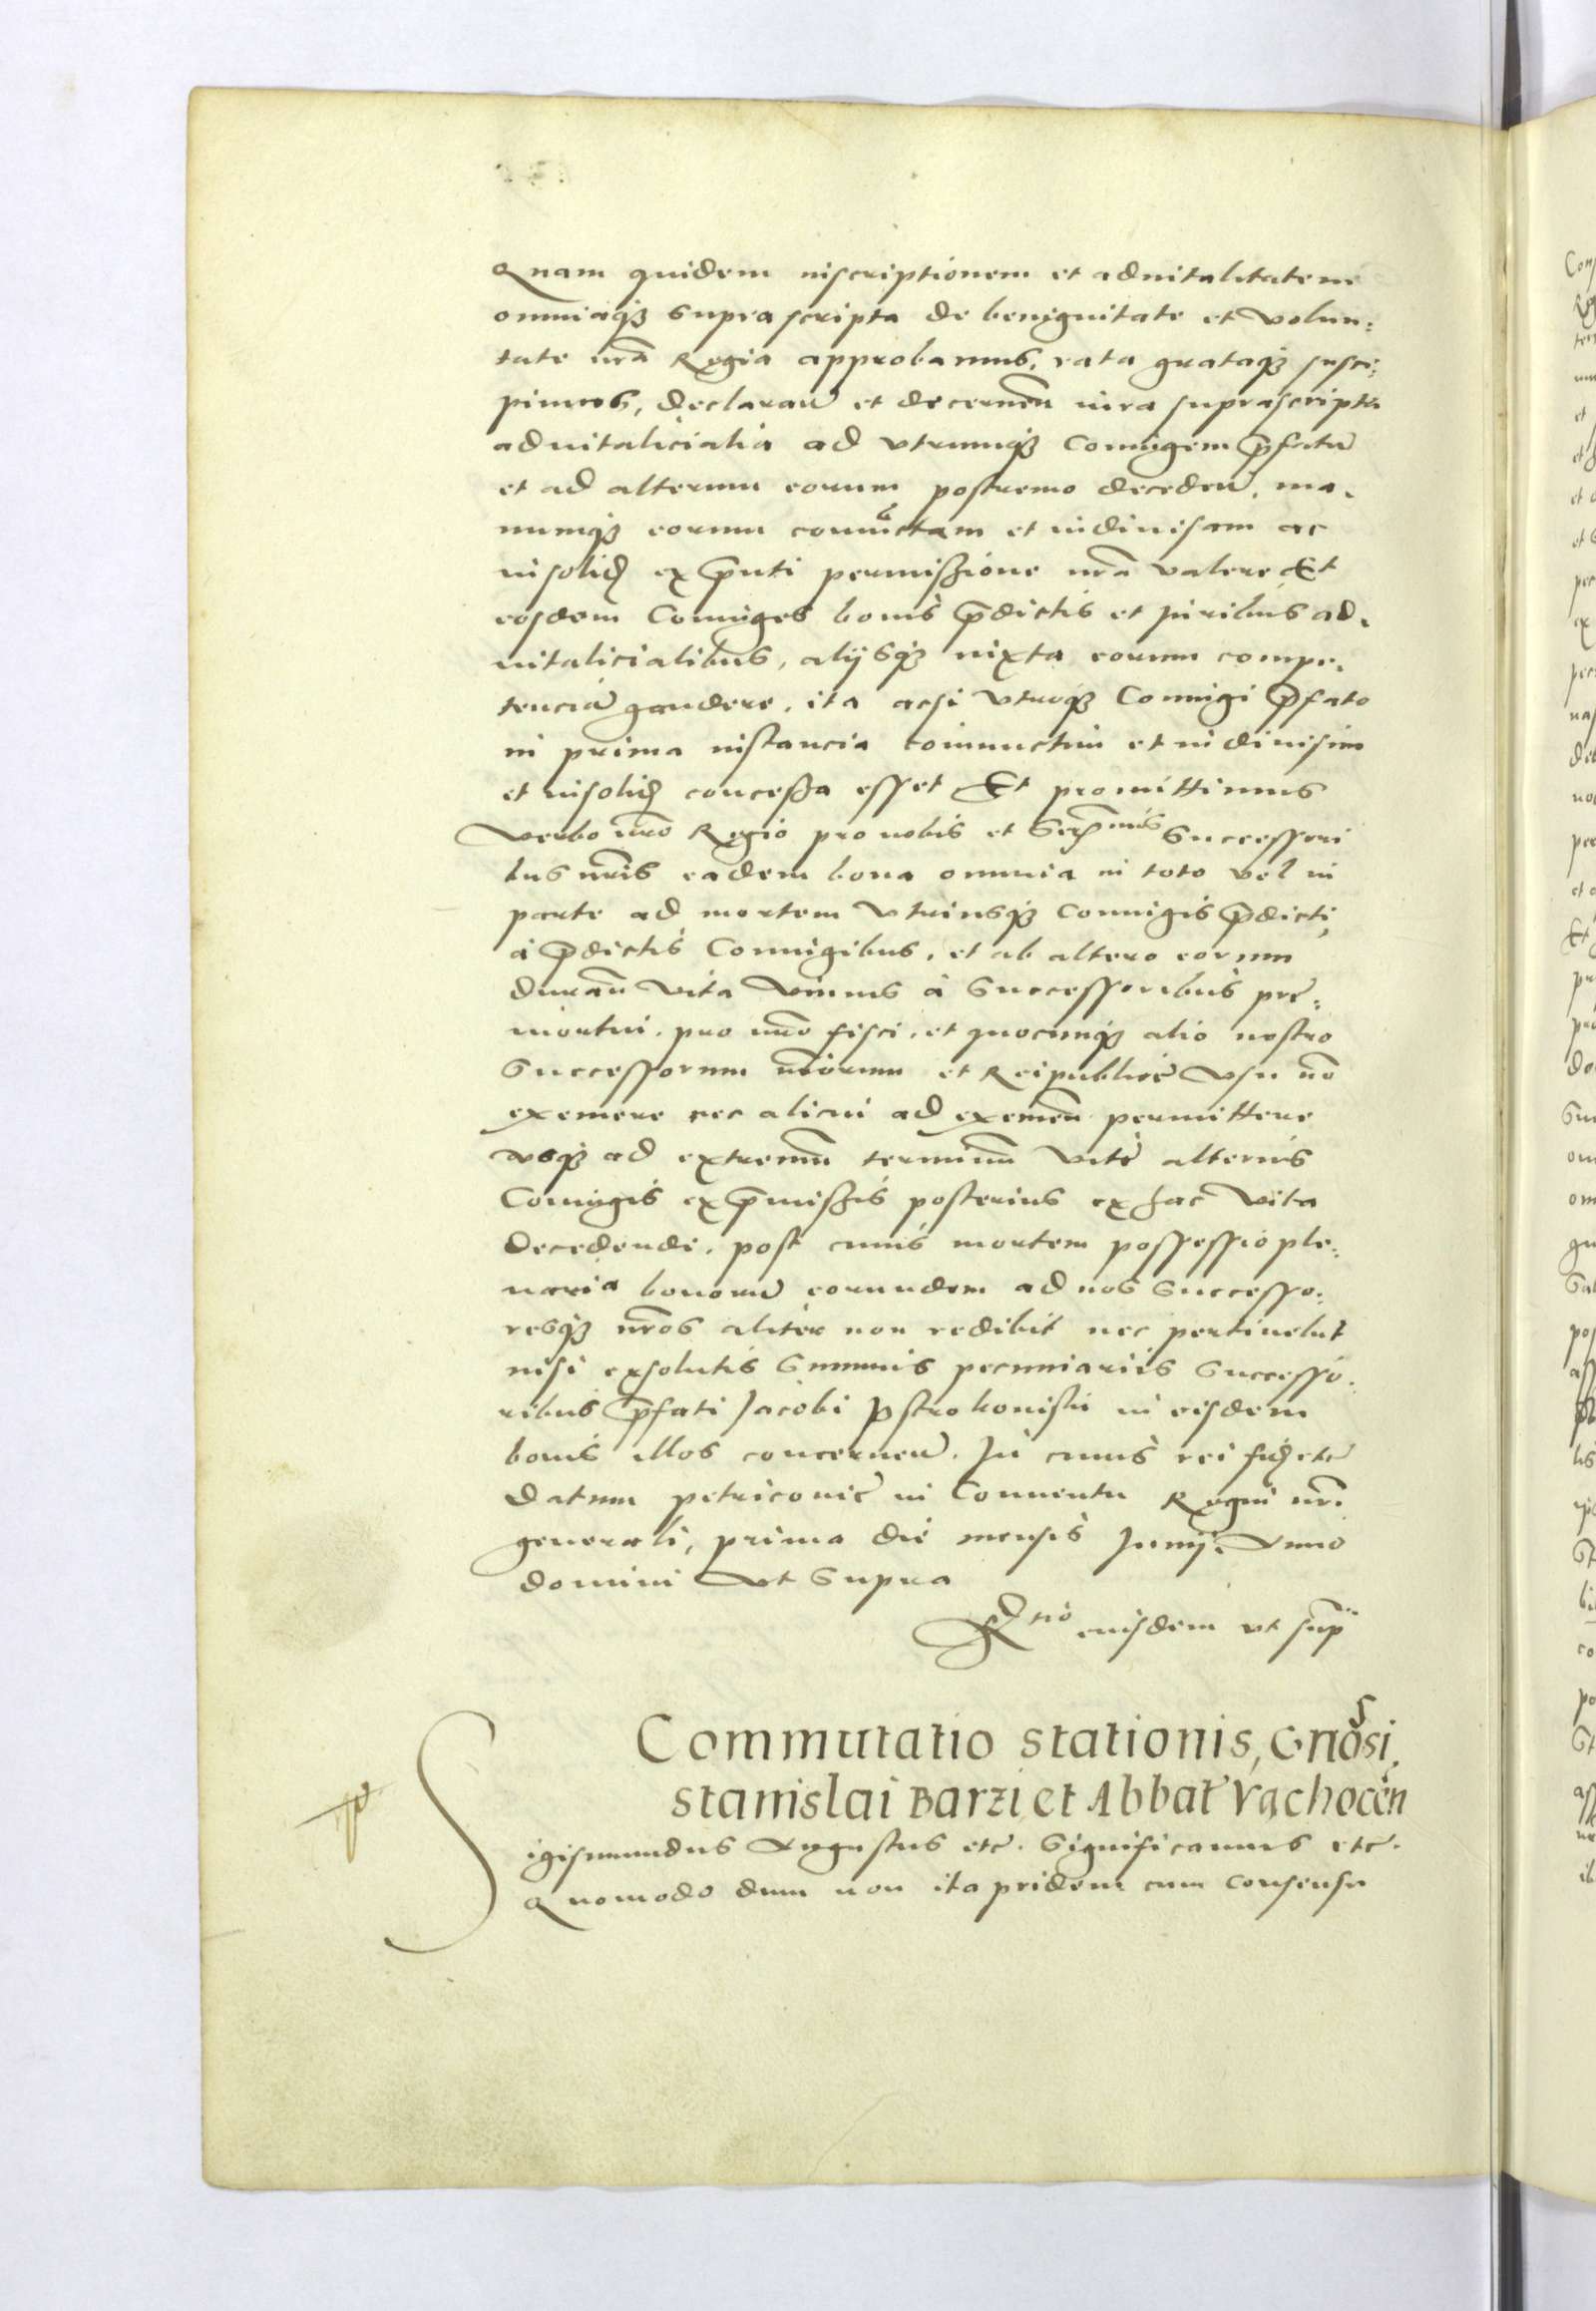 Quam quidem inscriptionem et advitalitatem
omniaqꝫ supra scripta de benignitate et volun:
tate nr̄a Regia approbamus, rata grataqꝫ susci:
pimus, declaran̄ et decernen̄ iura suprascripta
advitalicialia ad vtrumqꝫ Coniugem p̄fatū
et ad alterum eorum postremo deceden̄, ma.
numqꝫ eorum coniūctam et indivisam ac
insolid ex p̄nti permissione nr̄a valere Et
eosdem Coniuges bonis p̄dictis et iuribus ad.
vitalicialibus, alijsqꝫ iuxta eorum compe.
tenciā gaudere, ita acsi vtriqꝫ Coniugi p̄fato
in prima instancia coniunctim et indivisim
et insolid concessa esset Et promittimus
verbo nr̄o Regio pro nobis et Serᵐⁱˢ Successori
bus nr̄is eadem bona omnia in toto vel in
parte ad mortem vtriusqꝫ Coniugis p̄dicti,
à p̄dictis Coniugibus, et ab altero eorum
duran̄ vita vnius à Successoribus pre:
mortui, pro nr̄o fisci, et quocunqꝫ alio nostro
Successorum nr̄orum et Reipublicę vsu nō
exemere nec alicui ad exemen̄ permittere
vsqꝫ ad extremū terminū vitę alterius
Coniugis ex p̄missis posterius ex hac vita
decedende, post cuius mortem possessio ple:
naria bonorū eorundem ad nos Successo:
resqꝫ nr̄os aliter non redibit nec pertinebit
nisi exsolutis Summis pecuniariis Successo.
ribus p̄fati Jacobi Pstrokonski in eisdem
bonis illos concernen̄. In cuius rei fid etc̄
Datum Petricovię in Conventu Regni nr̄i
generali, prima die mensis Junij. Anno
domini vt Supra
Rᵗⁱᵒ eiusdem vt supͣ
Commutatio stationis, Gnōsi
stanislai Barzi et Abbat̄ Vąchocēn
Sigismundus Augustus etc̄. Significamus etc̄.
Quomodo dum non ita pridem cum consensu